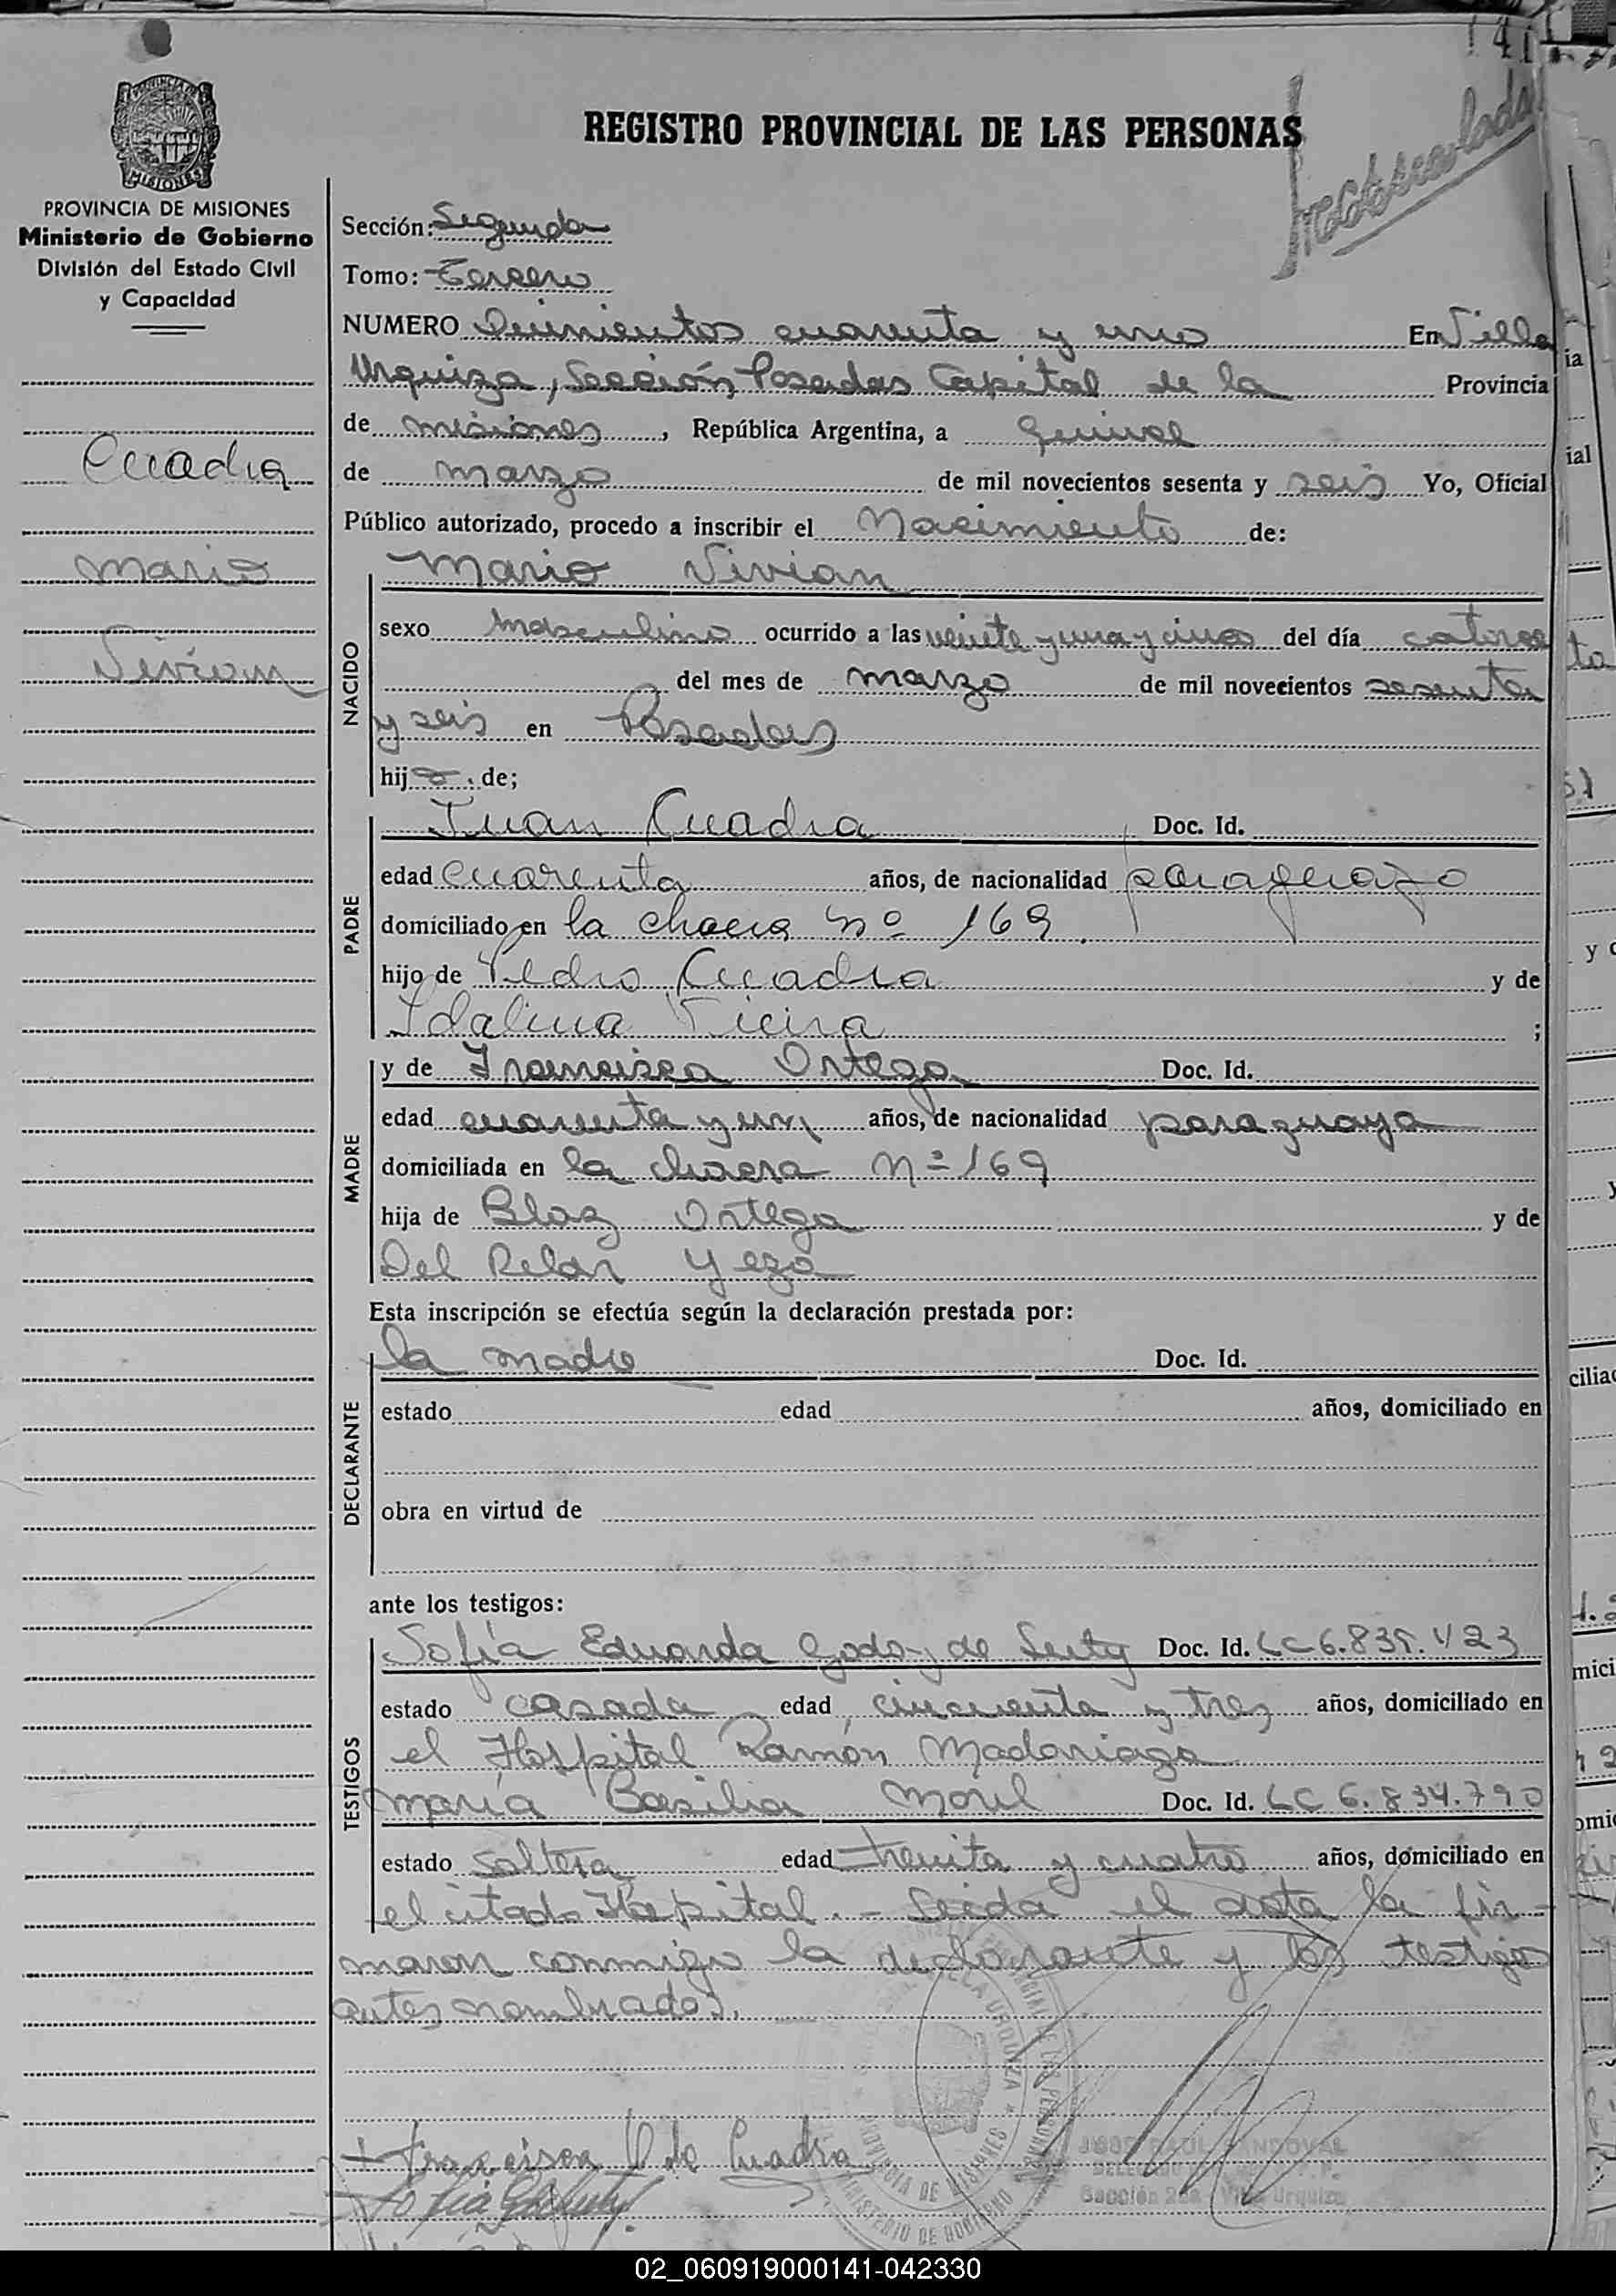 141
REGISTRO PROVINCIAL DE LAS PERSONAS
PROVINCIA DE MISIONES
Ministerio de Gobierno
División del Estado Civil
y Capacidad
Cuadra
Mario
Vivian
Sección: Segunda
Tomo: Tercero
NUMERO Quinientos cuarenta y uno En Villa
Urquiza, Sección Posadas Capital de la Provincia
de misiones, República Argentina, a quince
de marzo de mil novecientos sesenta y seis Yo, Oficial
Público autorizado, procedo a inscribir el Nacimiento de:
NACIDO
Mario Vivian
sexo Masculino ocurrido a las veinte y una y cinco del día catorce
del mes de marzo de mil novecientos sesenta
y seis en Posadas
hijo de;
PADRE
Juan Cuadra Doc. Id.
edad cuarenta años, de nacionalidad paraguayo
domiciliado en la chacra Nº 169.
hijo de Pedro Cuadra y de
Idalina Vieira ;
MADRE
y de Francisca Ortega Doc. Id.
edad cuarenta y un años, de nacionalidad paraguaya
domiciliada en la chacra Nº 169
hija de Blaz Ortega y de
Del Pilar Yeza
Esta inscripción se efectúa según la declaración prestada por:
DECLARANTE
la madre Doc. Id.
estado edad años, domiciliado en
obra en virtud de
ante los testigos:
TESTIGOS
Sofía Eduarda Godoy de Doc. Id. LC 6.835.423
estado casada edad cincuenta y tres años, domiciliado en
el Hospital Ramón Madariaga
María Basilia Doc. Id. LC 6.834.790
estado Soltera edad treinta y cuatro años, domiciliado en
el citado Hospital. - Leida el acta la fir-
maron conmigo la declarante y los testigos
antes nombrados.
Francisca O de Cuadra
Sección 2da Villa Urquiza
02_060919000141-042330